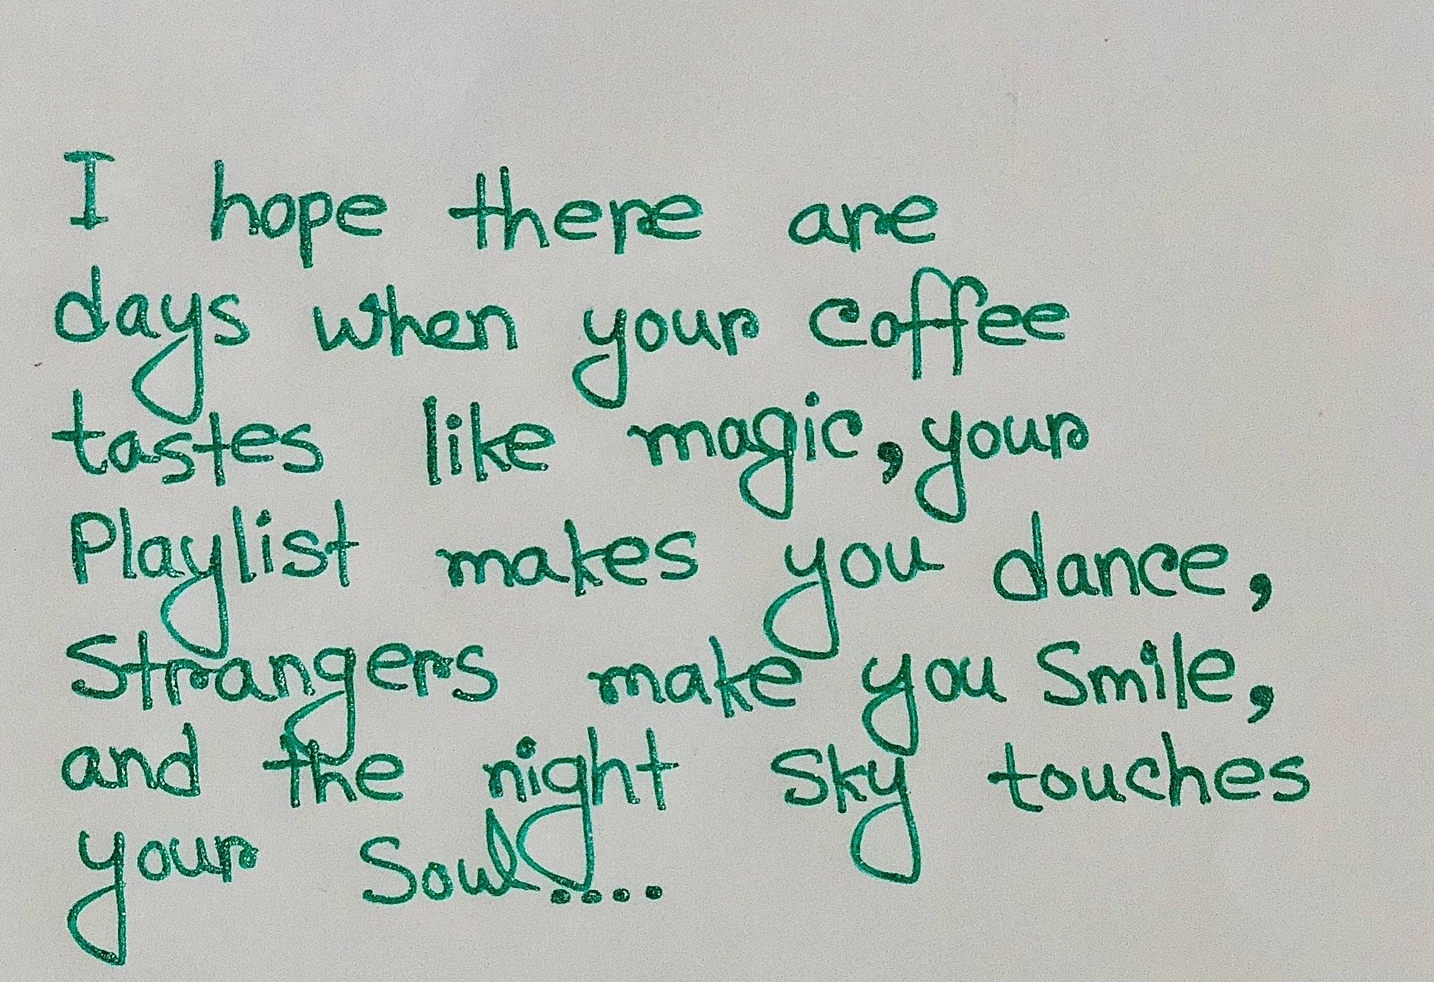 I hope there are
days when your coffee
tastes like magic, your
Playlist makes you dance,
Strangers make you Smile,
and the night Sky touches
your Soul....